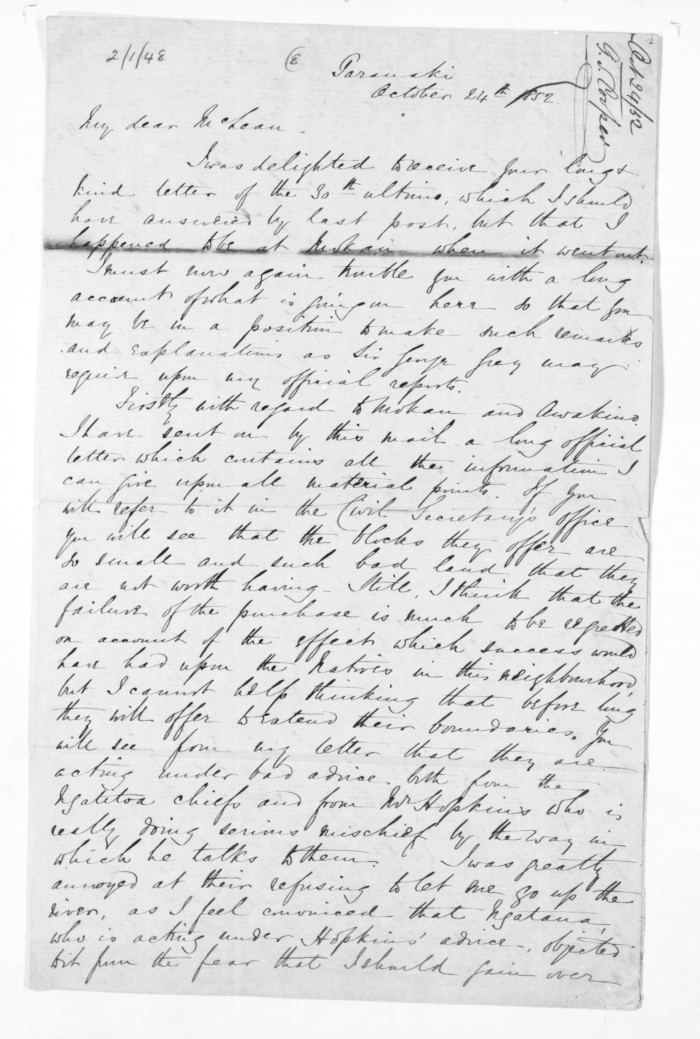 2/1/48
Oct 24/52
G.S. Cooper
Taranaki
October 24th 1852
My dear McLean -
I was delighted to receive your long &
kind letter of the 30th ultimo, which I should
have answered by last post, but that I
happened to be at Mokau when it went out.
I must now again trouble you with a long
account of what is going on here so that you
may be in a position to make such remarks
and explanations as Sir George Grey may
require upon my official reports.
Firstly with regard to Mokau and Awakino.
I have sent on by this mail a long official
letter which contains all the information I
can give upon all material points. If you
will refer to it in the Civil Secretary's office
you will see that the blocks they offer are
so small and such bad land that they
are not worth having. Still, I think that the
failure of the purchase is much to be regretted
on account of the effect which success would
have had upon the Natives in this neighbourhood,
but I cannot help thinking that before long
they will offer to extend their boundaries. You
will see from my letter that they are
acting under bad advice both from the
Ngatitoa chiefs and from Mr Hopkins who is
really doing serious mischief by the way in
which he talks to them. I was greatly
annoyed at their refusing to let me go up the
river, as I feel convinced that Ngatana,
who is acting under Hopkins' advice, objected
to it from the fear that I should gain over